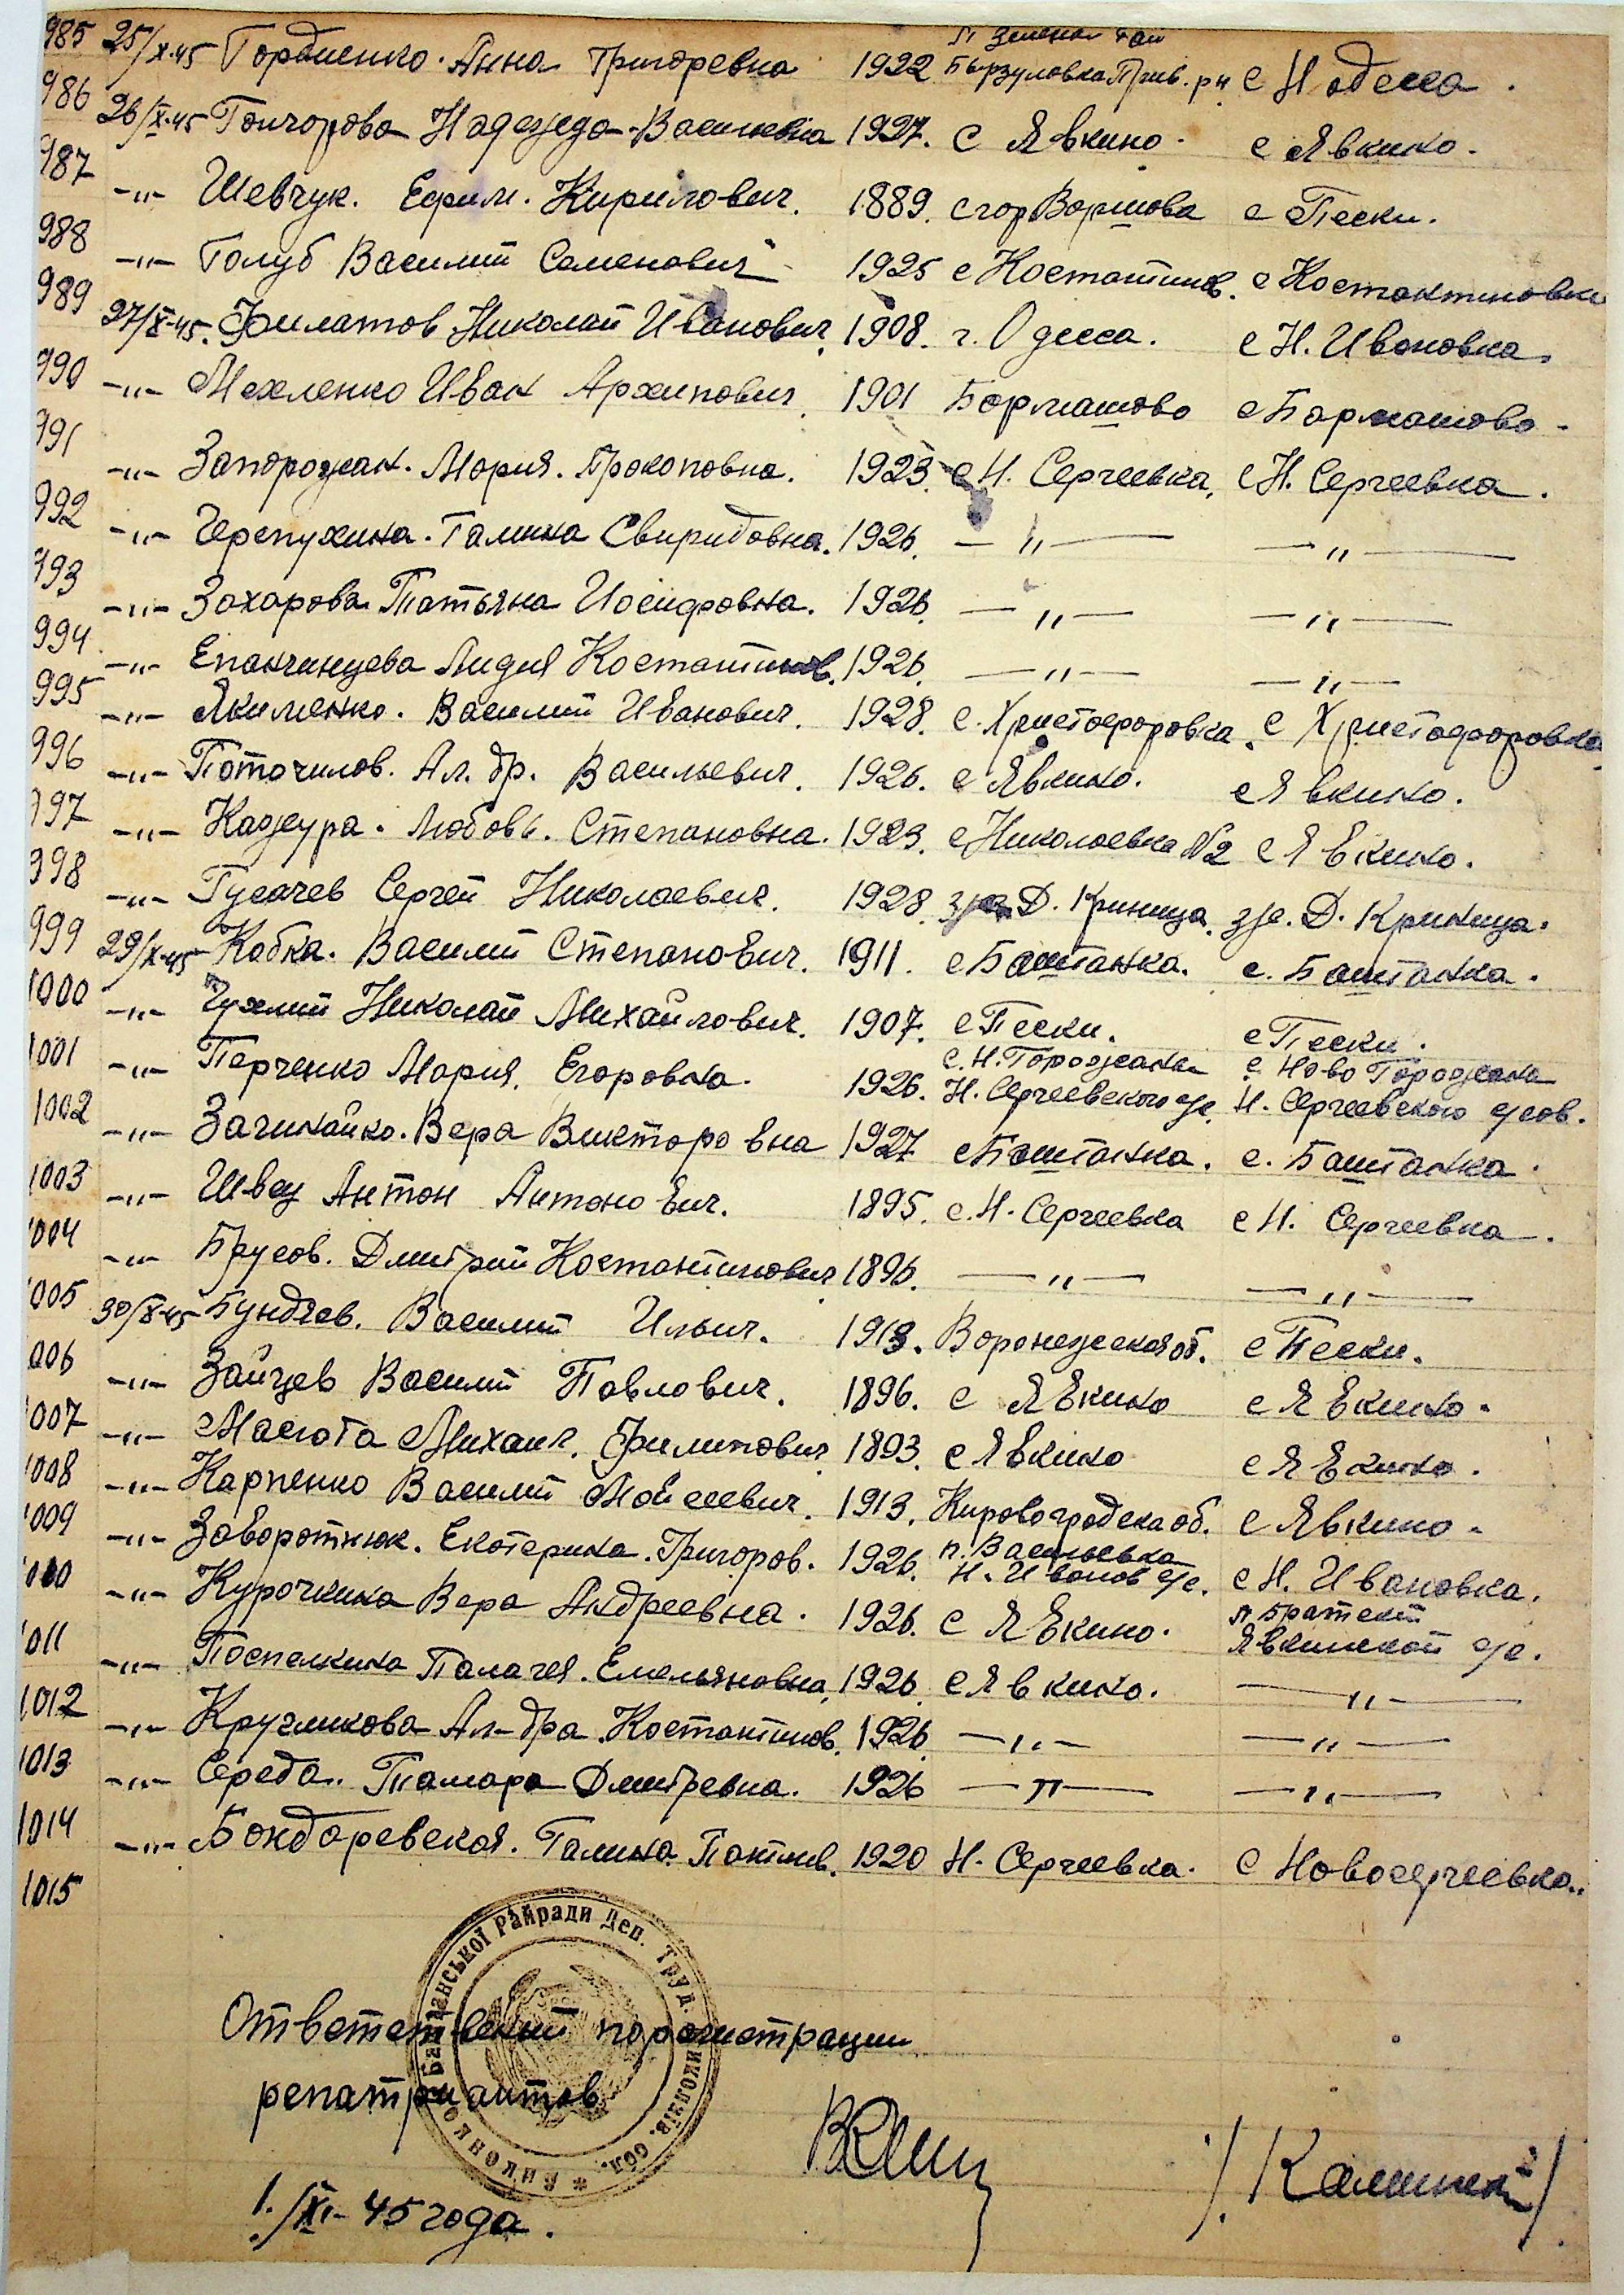 985 25/X-45 Гордиенко. Анна Григоревна 1922 п Зеленой Гай Бырзуловка Прив. рн с Н одесса.
986 26/X-45 Гончорова Надежда Васильевна 1927. с Явкино. с Явкино.
987 -"- Шевчук. Ефим. Кирилович. 1889. с гор Варшова с Пески.
988 -"- Голуб Василий Семенович 1925 с Костантинов. с Костактиновка
989 27/X-45. Филатов Николай Иванович. 1908. г. Одесса. с Н. Ивановка.
990 -"- Мехленко Иван Архипович. 1901 Бармашово с Бармашово.
991 -"- Запорожан. Мария. Прокоповна. 1923. с Н. Сергеевка, с Н. Сергеевка.
992 -"- Черепухина. Галина Свиридовна. 1926. -"- -"-
993 -"- Захарова Татьяна Иосифовна. 1926. -"- -"-
994 -"- Епанчинцева Лидия Костантинов. 1926. -"- -"-
995 -"- Якименко. Василий Иванович. 1928. с. Христофоровка. с Христофоровка.
996 -"- Поточилов. Ал. др. Васильевич. 1926. с Явкино. с Явкино.
997 -"- Кадеура. Любовь. Степановна. 1923. с Николаевка №2 с Явкино.
998 -"- Гусачев Сергей Николаевич. 1928. Д. Криница. Д. Криница.
999 29/X-45 Кобка. Василий Степанович. 1911. с Баштанка. с. Баштанка.
1000 -"- Чухлий Николай Михайлович. 1907. с Пески. с Пески.
1001 -"- Перченко Мария. Егоровна. 1926. с. Н. Горожана Н. Сергеевского с/с. с. Ново Горожана Н. Сергеевского с/сов.
1002 -"- Зачинайко. Вера Викторовна 1927 с Баштанка. с. Баштанка.
1003 -"- Швец Антон Антонович. 1895. с. Н. Сергеевка с Н. Сергеевка.
1004 -"- Брусов. Дмитрий Костантинович 1896. -"- -"-
1005 30/X-45 Бундяев. Василий Ильич. 1913. Воронежская об. с Пески.
1006 -"- Зайцев Василий Павлович. 1896. с Явкино с Явкино.
1007 -"- Масюта Михаил. Филипович. 1893. с Явкино с Явкино.
1008 -"- Карпенко Василий Мойсеевич. 1913. Кировоградска об. с Явкино.
1009 -"- Заворотнюк. Екатерина. Григоров. 1926. п. Васильевка Н. Иванов с/с. с Н. Ивановка.
1010 -"- Курочкина Вера Андреевна. 1926. с Явкино. п Братский Явкинской с/с.
1011 -"- Поспелкина Палагея. Емельяновна, 1926. с Явкино. -"-
1012 -"- Кругликова Ал-дра. Костантинов. 1926. -"- -"-
1013 -"- Середа. Тамара Дмитревна. 1926 -"- -"-
1014 -"- Бондаревская. Галина. 1920 Н. Сергеевка. с Новосергеевка.
1015
Виконком Баштанської Райради Деп. Труд. Миколаїв. обл.
Ответственный по регистрации
репатриантов
/Калинский/
1./XI- 45 года.